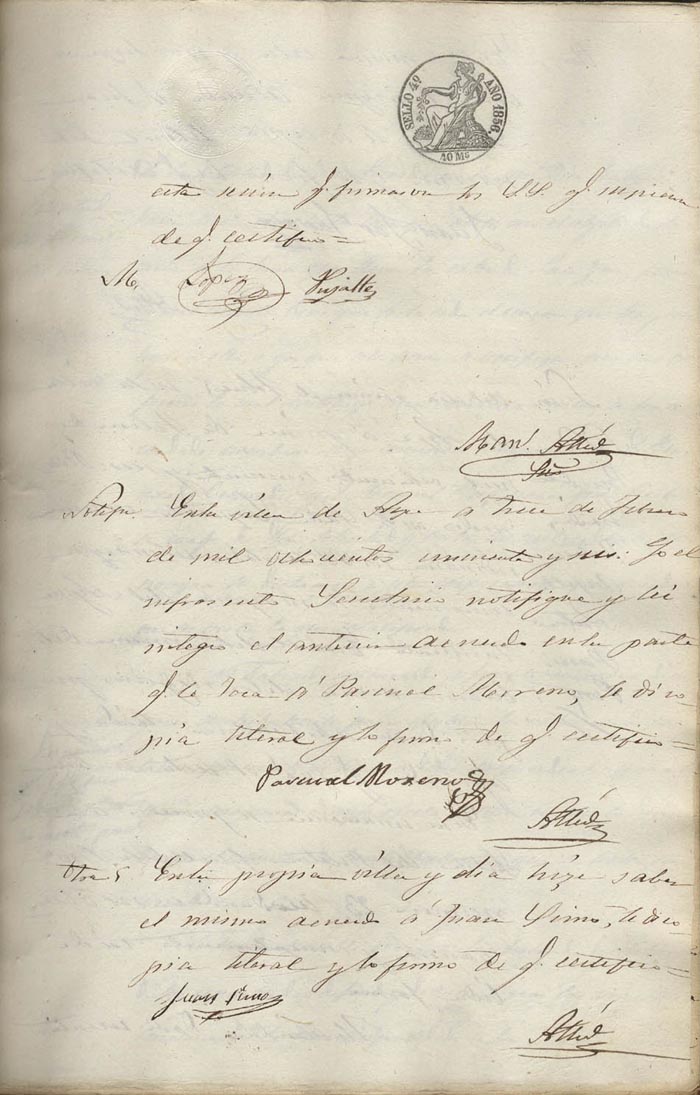 SELLO 4º AÑO 1856.
40 Ms
esta sesion q. firmaron los S.S. q. supieron
de q. certifico =
M. Lopez Pujalte
Man.l Atlied
Srio
Notifon. En la villa de Aspe á trece de Febrero
de mil ochocientos cincuenta y seis: Yo el
infrascrito Secretario notifique y lei
integro el anterior acuerdo en la parte
q. le toca á Pascual Moreno, le di co-
pia literal y lo firmo de q. certifico =
Pascual Moreno
Otra En la propia villa y dia hize saber
el mismo acuerdo á Juan Simó, le di co-
pia literal y lo firmo de q. certifico =
Juan Simo